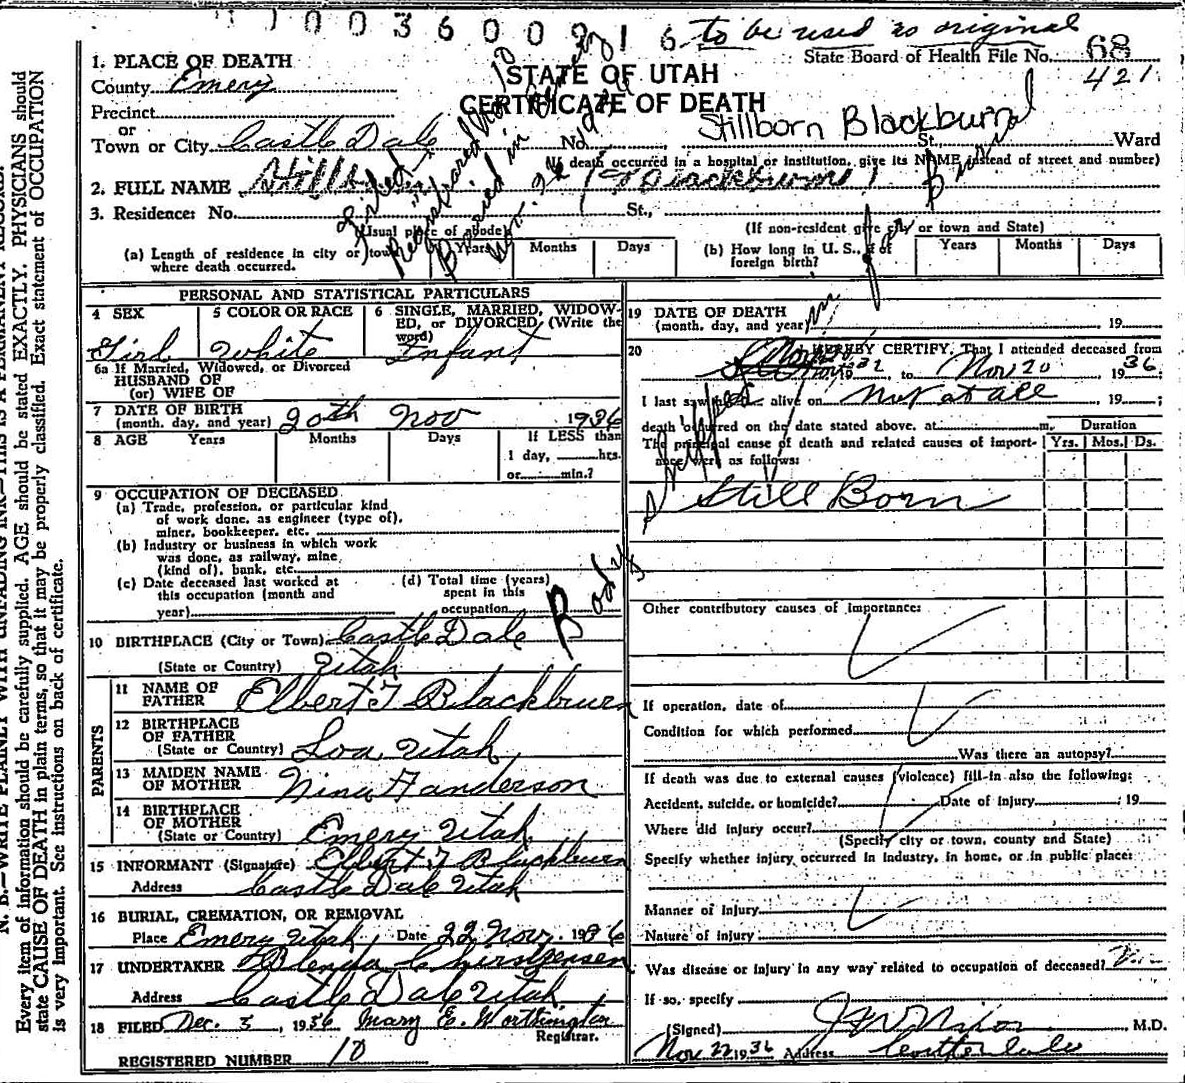 1003600216 to be used as original
State Board of Health File No. 68
421
1. PLACE OF DEATH
STATE OF UTAH
County Emery
CERTIFICATE OF DEATH
Precinct
Stillborn Blackburn
or
Town or City Castle Dale No. St. Ward
(If death occurred in a hospital or institution, give its NAME instead of street and number)
2. FULL NAME Blackburn
3. Residence: No. St.,
(Usual place of abode) (If non-resident give city or town and State)
(a) Length of residence in city or town where death occurred. Years Months Days
(b) How long in U. S., if of foreign birth? Years Months Days
Filed
Registrared No 10
Buried in Emery
Body shipped in for Burial
PERSONAL AND STATISTICAL PARTICULARS
4 SEX 5 COLOR OR RACE 6 SINGLE, MARRIED, WIDOWED, or DIVORCED, (Write the word)
Girl White Infant
6a If Married, Widowed, or Divorced
HUSBAND OF
(or) WIFE OF
7 DATE OF BIRTH
(month, day, and year) 20th Nov 1936
8 AGE Years Months Days If LESS than
1 day, hrs.
or min.?
9 OCCUPATION OF DECEASED
(a) Trade, profession, or particular kind
of work done, as engineer (type of),
miner, bookkeeper, etc.
(b) Industry or business in which work
was done, as railway, mine
(kind of), bank, etc.
(c) Date deceased last worked at
this occupation (month and
year)
(d) Total time (years)
spent in this
occupation
10 BIRTHPLACE (City or Town) Castle Dale
(State or Country) Utah
PARENTS
11 NAME OF
FATHER Elbert T Blackburn
12 BIRTHPLACE
OF FATHER
(State or Country) Loa Utah
13 MAIDEN NAME
OF MOTHER Nina H anderson
14 BIRTHPLACE
OF MOTHER
(State or Country) Emery Utah
15 INFORMANT (Signature) Elbert T Blackburn
Address Castle Dale Utah
16 BURIAL, CREMATION, OR REMOVAL
Place Emery Utah Date 22 Nov, 1936
17 UNDERTAKER
Address Castle Dale Utah
18 FILED Dec. 3, 1936 Mary E. Worthington
Registrar.
REGISTERED NUMBER 10
19 DATE OF DEATH
(month, day, and year) 19
20 I HEREBY CERTIFY, That I attended deceased from
to Nov 20, 1936;
I last saw alive on Not at all, 19 ;
death occurred on the date stated above, at m. Duration
The principal cause of death and related causes of importance were as follows: Yrs. Mos. Ds.
Still Born
Other contributory causes of importance:
If operation, date of
Condition for which performed
Was there an autopsy?
If death was due to external causes (violence) fill in also the following:
Accident, suicide, or homicide? Date of injury 19
Where did injury occur?
(Specify city or town, county and State)
Specify whether injury occurred in industry, in home, or in public place:
Manner of injury
Nature of injury
Was disease or injury in any way related to occupation of deceased?
If so, specify
(Signed) M.D.
Nov 22 1936 Address
N. B.—WRITE PLAINLY WITH UNFADING INK—THIS IS A PERMANENT RECORD.
Every item of information should be carefully supplied. AGE should be stated EXACTLY. PHYSICIANS should
state CAUSE OF DEATH in plain terms, so that it may be properly classified. Exact statement of OCCUPATION
is very important. See instructions on back of certificate.